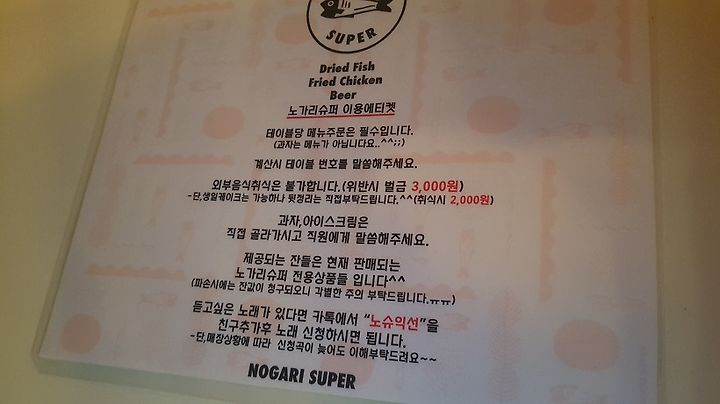 SUPER
Dried Fish
Fried Chicken
Beer
노가리슈퍼 이용에티켓
테이블당 메뉴주문은 필수입니다.
(과자는 메뉴가 아닙니다요..^^;;)
계산시 테이블 번호를 말씀해주세요.
외부음식취식은 불가합니다.(위반시 벌금 3,000원)
-단,생일케이크는 가능하나 뒷정리는 직접부탁드립니다.^^(취식시 2,000원)
과자,아이스크림은
직접 골라가시고 직원에게 말씀해주세요.
제공되는 잔들은 현재 판매되는
노가리슈퍼 전용상품들 입니다^^
(파손시에는 잔값이 청구되오니 각별한 주의 부탁드립니다.ㅠㅠ)
듣고싶은 노래가 있다면 카톡에서 “노슈익선”을
친구추가후 노래 신청하시면 됩니다.
-단,매장상황에 따라 신청곡이 늦어도 이해부탁드려요~~
NOGARI SUPER